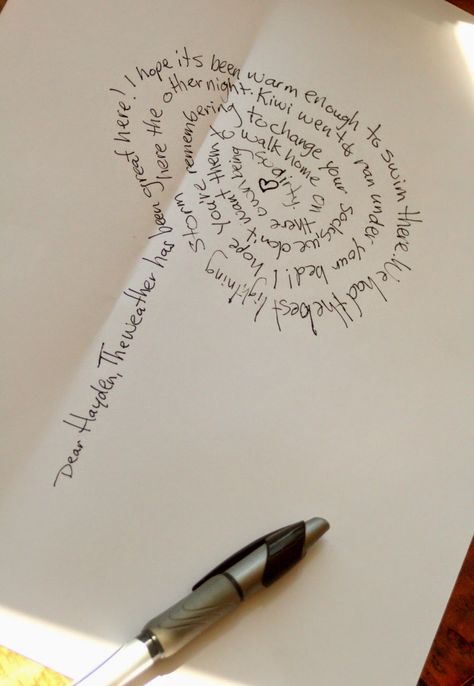 Dear Hayden, The weather has been great here! I hope its been warm enough to swim there. We had the best lightning storm here the other night. Kiwi went & ran under your bed! I hope you're remembering to change your socks, we don't want them to walk home on there own being so dirty.